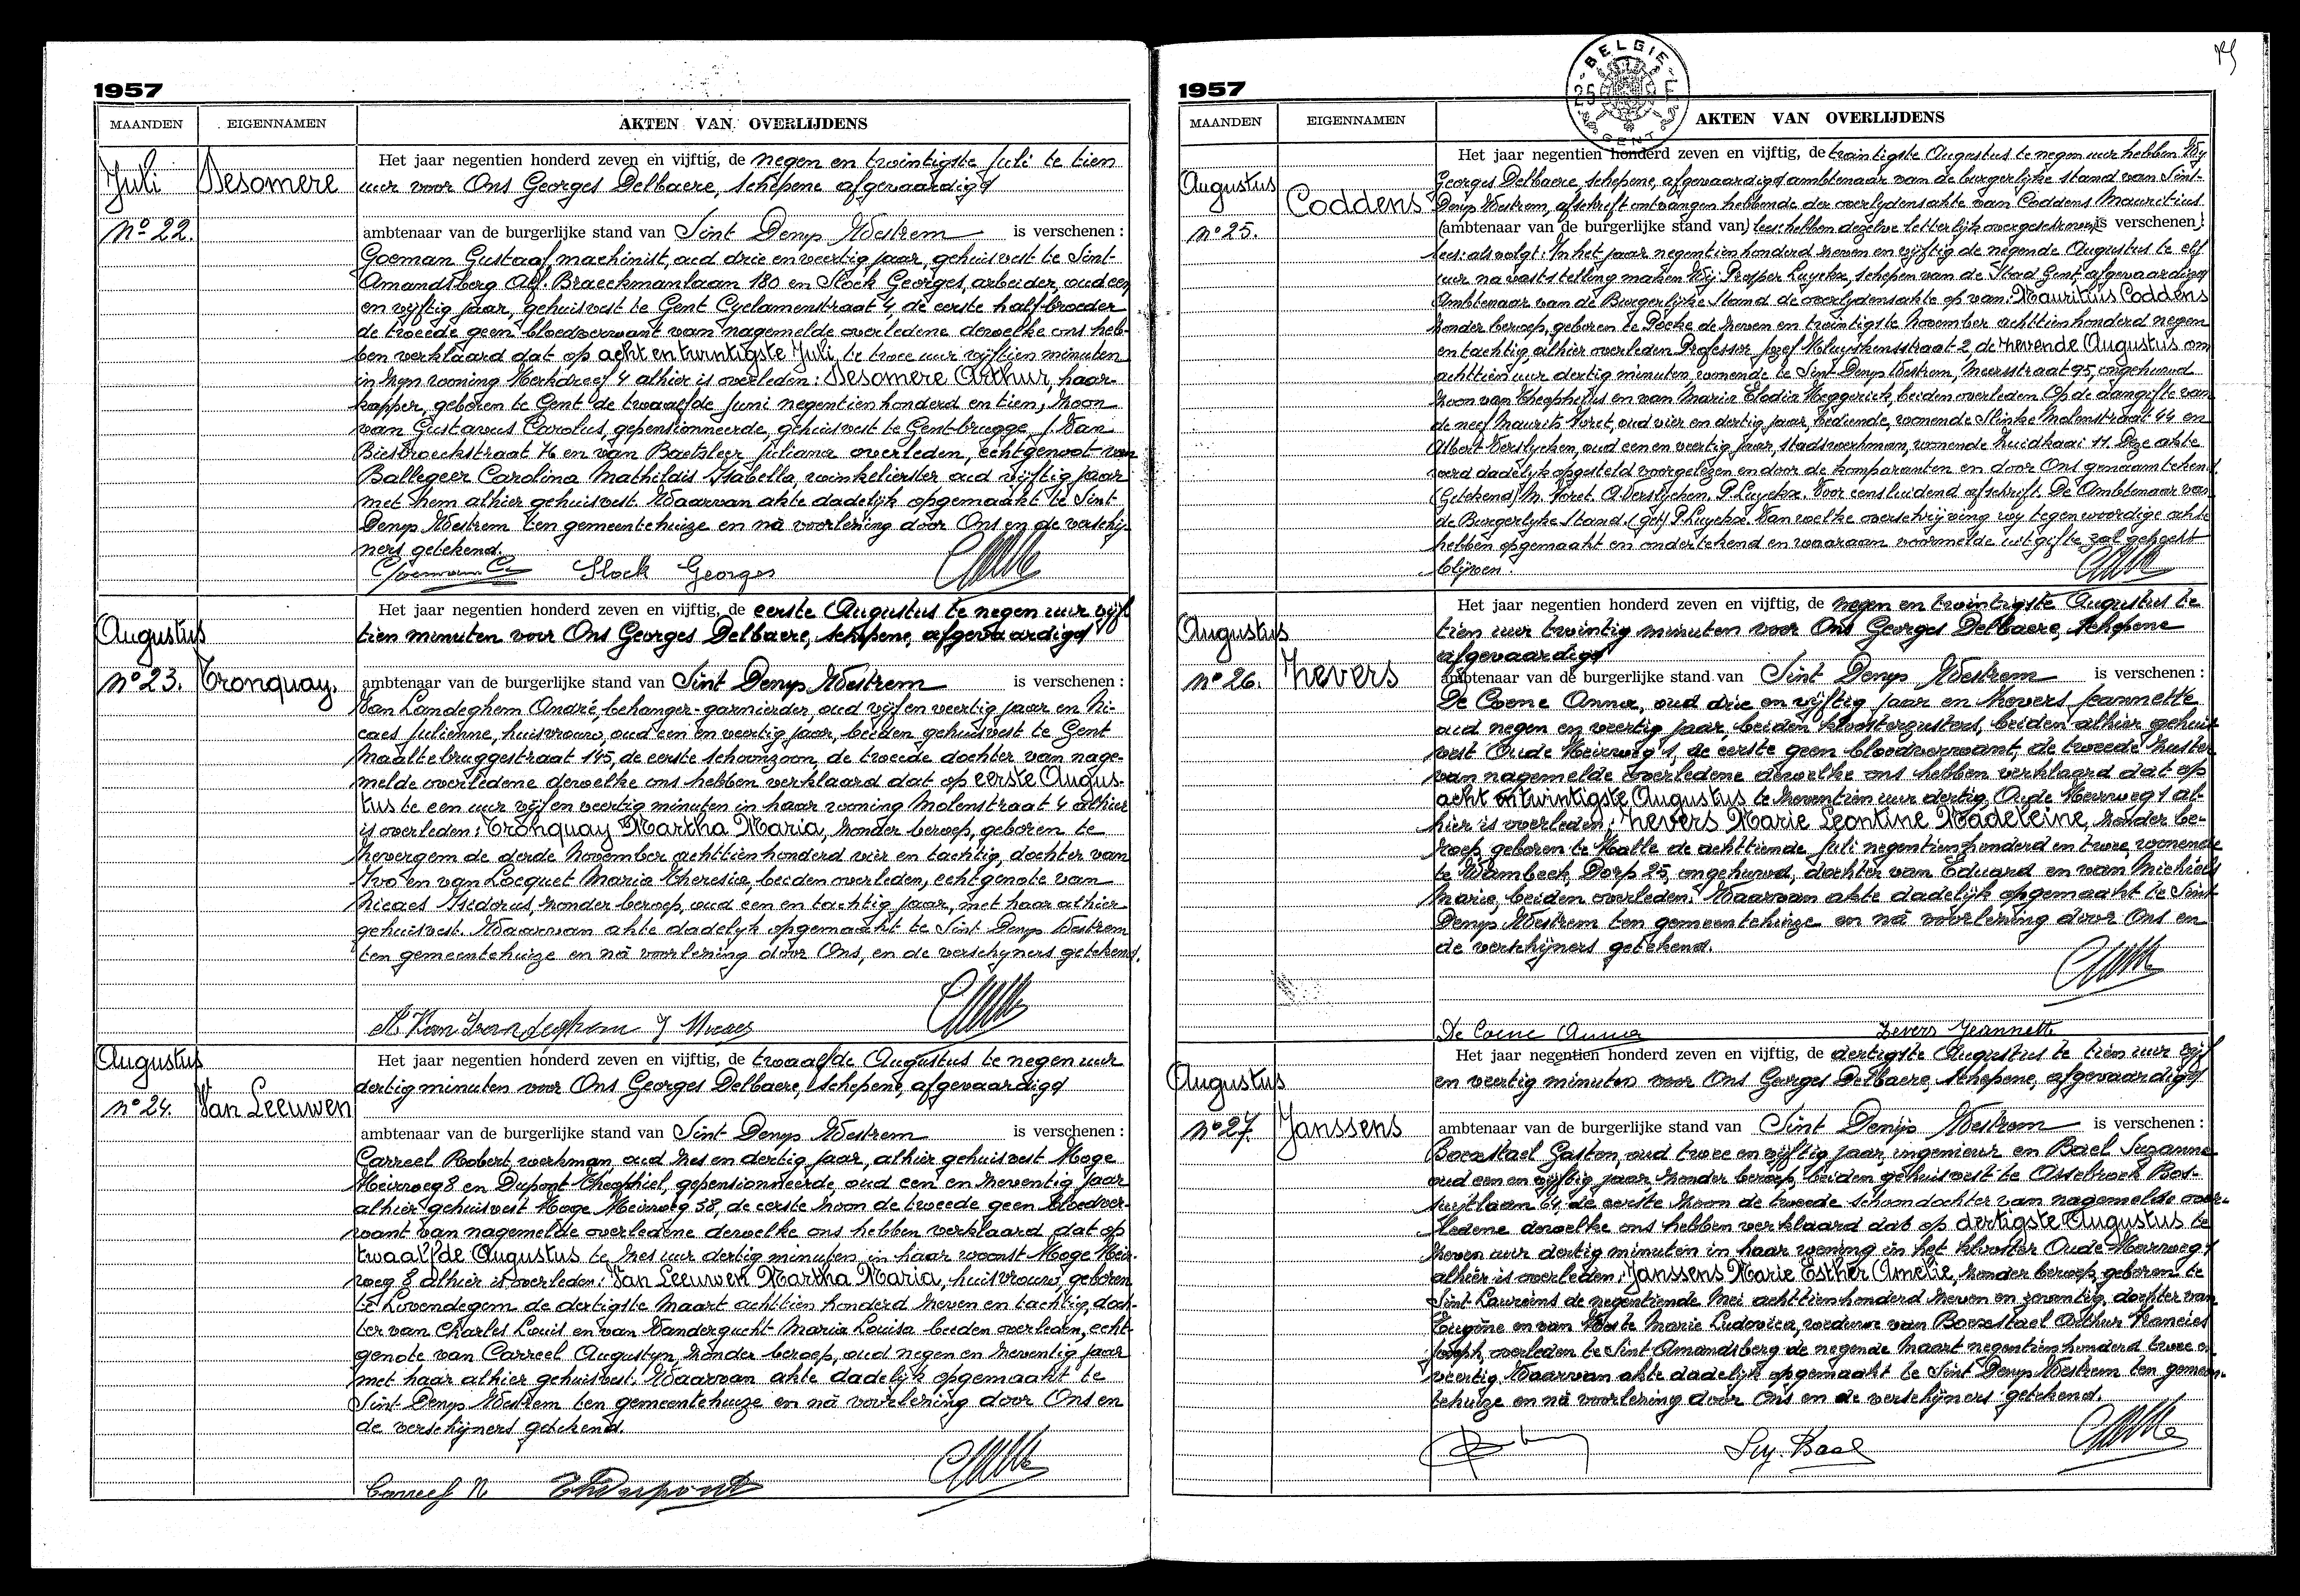 1957
MAANDEN EIGENNAMEN AKTEN VAN OVERLIJDENS
Juli
Nº 22.
Desomere
Het jaar negentien honderd zeven en vijftig, de negen en twintigste Juli te tien
uur voor Ons Georges Delbaere, schepene afgevaardigd
ambtenaar van de burgerlijke stand van Sint Denys Westrem is verschenen :
Goeman Gustaaf, machinist, oud drie en veertig jaar, gehuisvest te Sint-
Amandsberg Alf. Braeckmanlaan 180 en Slock Georges, arbeider, oud een
en vijftig jaar, gehuisvest te Gent Cyclamenstraat 4, de eerste half-broeder
de tweede geen bloedverwant van nagemelde overledene dewelke ons heb-
ben verklaard dat op acht en twintigste Juli, te twee uur vijftien minuten
in zijn woning Kerkdreef 4 alhier is overleden : Desomere Arthur, haar-
kapper, geboren te Gent de twaalfde Juni negentien honderd en tien, zoon
van Gustavus Carolus, gepensionneerde, gehuisvest te Gent-brugge J. Van
Biesbroeckstraat 76 en van Baetsleer Juliana overleden, echtgenoot van
Ballegeer Carolina Mathildis Isabella, winkelierster oud vijftig jaar
met hem alhier gehuisvest. Waarvan akte dadelijk opgemaakt te Sint
Denys Westrem ten gemeentehuize en nà voorlezing door Ons en de verschij-
ners getekend.
Goeman G. Slock Georges
Augustus
nº 23.
Tronquay.
Het jaar negentien honderd zeven en vijftig, de eerste Augustus te negen uur vijf
tien minuten voor Ons Georges Delbaere, schepene, afgevaardigd
ambtenaar van de burgerlijke stand van Sint Denys Westrem is verschenen :
Van Landeghem André, behanger-garnierder, oud vijf en veertig jaar en Ni-
caes Julienne, huisvrouw, oud een en veertig jaar, beiden gehuisvest te Gent
Maaltebruggestraat 145, de eerste schoonzoon, de tweede dochter van nage-
melde overledene dewelke ons hebben verklaard dat op eerste Augus-
tus te een uur vijf en veertig minuten in haar woning Molenstraat 4 alhier
is overleden : Tronquay Martha Maria, zonder beroep, geboren te
Zevergem de derde November achttien honderd vier en tachtig, dochter van
Ivo en van Locquet Maria Theresia, beiden overleden, echtgenote van
Nicaes Isidorus, zonder beroep, oud een en tachtig jaar, met haar alhier
gehuisvest. Waarvan akte dadelijk opgemaakt te Sint Denys Westrem
ten gemeentehuize en nà voorlezing door Ons, en de verschijners getekend.
A Van Landeghem J Nicaes
Augustus
nº 24.
Van Leeuwen
Het jaar negentien honderd zeven en vijftig, de twaalfde Augustus te negen uur
dertig minuten voor Ons Georges Delbaere, schepene, afgevaardigd
ambtenaar van de burgerlijke stand van Sint Denys Westrem is verschenen :
Carreel Robert, werkman, oud zes en dertig jaar, alhier gehuisvest Hoge
Heirweg 8 en Dupont Theophiel, gepensionneerde, oud een en zeventig jaar
alhier gehuisvest Hoge Heirweg 38, de eerste zoon de tweede geen bloedver-
want van nagemelde overledene dewelke ons hebben verklaard dat op
twaalfde Augustus te zes uur dertig minuten in haar woonst Hoge Heir-
weg 8 alhier is overleden : Van Leeuwen Martha Maria, huisvrouw, geboren
te Lovendegem de dertigste Maart achttien honderd zeven en tachtig, doch-
ter van Charles Louis en van Vandergucht Maria Louisa beiden overleden, echt-
genote van Carreel Augustyn, zonder beroep, oud negen en zeventig jaar
met haar alhier gehuisvest. Waarvan akte dadelijk opgemaakt te
Sint Denys Westrem ten gemeentehuize en nà voorlezing door Ons en
de verschijners getekend.
Carreel R Th Dupont
1957
BELGIE
GENT
MAANDEN EIGENNAMEN AKTEN VAN OVERLIJDENS
Augustus
nº 25.
Coddens
Het jaar negentien honderd zeven en vijftig, de twintigste Augustus te negen uur hebben Wij
Georges Delbaere, schepene, afgevaardigd ambtenaar van de burgerlijke stand van Sint-
Denys Westrem, afschrift ontvangen hebbende der overlydensakte van Coddens Mauritius
(ambtenaar van de burgerlijke stand van) hebben dezelve letterlijk overgeschreven (is verschenen)
als volgt : In het jaar negentien honderd zeven en vijftig de negende Augustus te elf
uur na vaststelling maken Wij Prosper Luyckx, schepen van de Stad Gent, afgevaardigd
Ambtenaar van de Burgerlijke Stand de overlydensakte op van : Mauritius Coddens
zonder beroep, geboren te Poeke de zeven en twintigste November achttien honderd negen
en tachtig, alhier overleden Professor Jozef Kluyskensstraat 2, de zevende Augustus om
achttien uur dertig minuten, wonende te Sint Denys Westrem, Meersstraat 95, ongehuwd
zoon van Theophilus en van Maria Elodia Heggerick, beiden overleden. Op de aangifte van
de neef Maurits Voret, oud vier en dertig jaar, bediende, wonende Slinke Molenstraat 44 en
Albert Verslycken, oud een en veertig jaar, stadswerkman, wonende Zuidkaai 11. Deze akte
werd dadelyk opgesteld voorgelezen en door de komparanten en door Ons genaamtekend
(Getekend) M. Voret. A. Verslycken. P. Luyckx. Voor eensluidend afschrift. De Ambtenaar van
de Burgerlyke Stand. (get) P. Luyckx. Van welke overschrijving wy tegenwoordige akte
hebben opgemaakt en ondertekend en waaraan voormelde uitgifte zal gehecht
blijven.
Augustus
nº 26.
Zevers
Het jaar negentien honderd zeven en vijftig, de negen en twintigste Augustus te
tien uur twintig minuten voor Ons Georges Delbaere, schepene
afgevaardigd
ambtenaar van de burgerlijke stand van Sint Denys Westrem is verschenen :
De Coene Anna, oud drie en vijftig jaar en Zevers Jeannette
oud negen en veertig jaar, beiden kloosterzusters, beiden alhier gehuis-
vest Oude Heirweg 1, de eerste geen bloedverwant, de tweede zuster
van nagemelde overledene dewelke ons hebben verklaard dat op
acht en twintigste Augustus te zeventien uur dertig, Oude Heirweg 1 al-
hier is overleden : Zevers Marie Leontine Madeleine, zonder be-
roep, geboren te Halle de achttiende Juli negentien honderd en twee, wonende
te Wambeek, Dorp 25, ongehuwd, dochter van Eduard en van Michiels
Marie, beiden overleden. Waarvan akte dadelijk opgemaakt te Sint
Denys Westrem ten gemeentehuize en nà voorlezing door Ons en
de verschijners getekend.
De Coene Anna Zevers Jeannette
Augustus
nº 27.
Janssens
Het jaar negentien honderd zeven en vijftig, de dertigste Augustus te tien uur vijf
en veertig minuten voor Ons Georges Delbaere, schepene, afgevaardigd
ambtenaar van de burgerlijke stand van Sint Denijs Westrem is verschenen :
Boexstael Gaston, oud twee en vijftig jaar, ingenieur en Bael Suzanne
oud een en vijftig jaar zonder beroep, beiden gehuisvest te Assebroek Bos-
suytlaan 64, de eerste zoon de tweede schoondochter van nagemelde over-
ledene dewelke ons hebben verklaard dat op dertigste Augustus te
zeven uur dertig minuten in haar woning in het klooster Oude Heirweg 1
alhier is overleden : Janssens Marie Esther Amelie, zonder beroep, geboren te
Sint Laureins de negentiende Mei achttien honderd zeven en zeventig, dochter van
Eugène en van Marie Ludovica, weduwe van Boexstael Arthur Francies
Joseph, overleden te Sint Amandsberg de negende Maart negentien honderd twee en
veertig. Waarvan akte dadelijk opgemaakt te Sint Denys Westrem ten gemeen-
tehuize en nà voorlezing door Ons en de verschijners getekend.
Suz. Bael